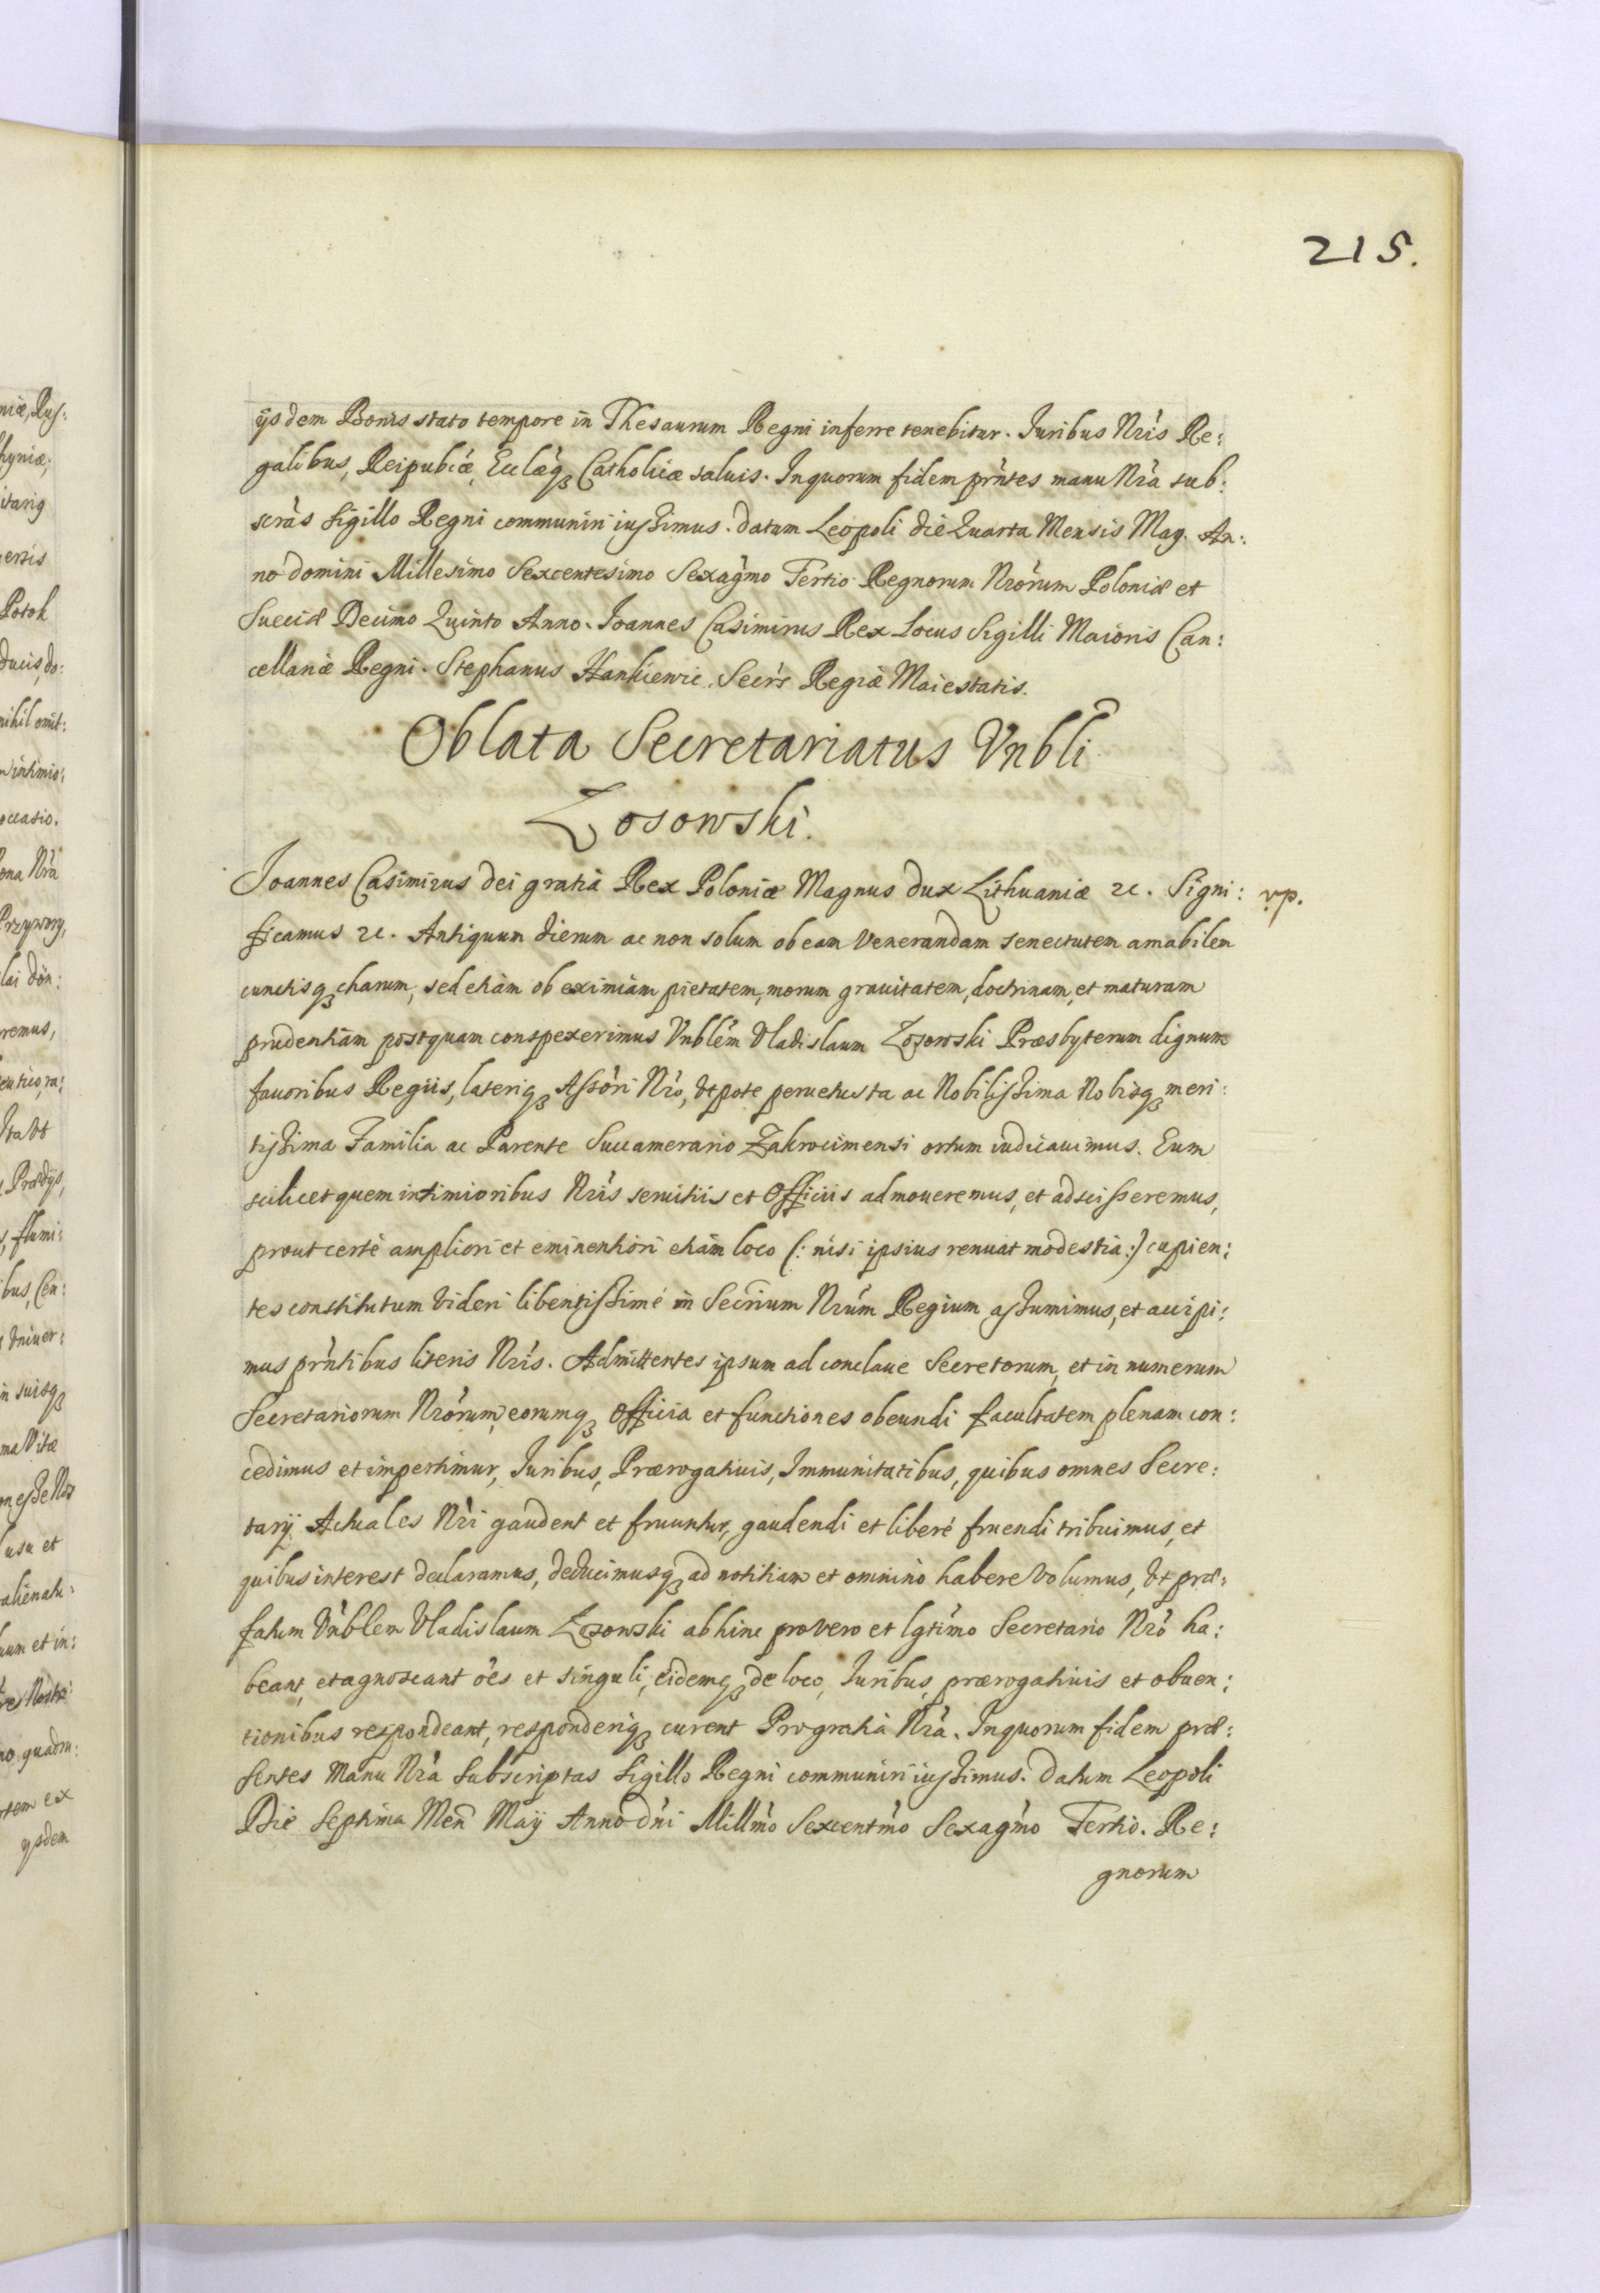 215.
ijsdem Bonis stato tempore in Thesaurum Regni inferre tenebitur. Iuribus Nr̃is Re:
galibus, Reipubc̃æ, Ecclæq́ꝫ Catholicæ saluis. Inquorum fidem pr̃ntes manu Nr̃a sub:
scr̃as Sigillo Regni communiri iussimus. Datum Leopoli die Quarta Mensis Maij. An:
no domini Millesimo Sexcentesimo Sexag̃mo Tertio Regnorum Nr̃orum Poloniæ et
Sueciæ Decimo Quinto Anno. Ioannes Casimirus Rex Locus Sigilli Maioris Can:
cellariæ Regni. Stephanus Hankiewic. Secr̃s Regiæ Maiestatis.
Oblata Secretariatus Vnbli
Zosowski.
Ioannes Casimirus Dei gratia Rex Poloniæ Magnus dux Lithuaniæ ꝛc. Signi: vp.
ficamus ꝛc. Antiquum dierum ac non solum ob eam Venerandam senectutem amabilem
cunctisqꝫ charum, sed etiam ob eximiam pietatem, morum grauitatem, doctrinam, et maturam
prudentiam postquam conspexerimus Vnblẽm Vladislaum Zosowski Præsbyterum dignum
fauoribus Regiis, lateriqꝫ Assõri Nr̃o, Vtpote peruetusta ac Nobilissima Nobisqꝫ meri:
tissima Familia ac Parente Succamerario Zakrocimensi ortum iudicauimus. Eum
scilicet quem intimioribus Nr̃is seruitiis et Officiis admoueremus, et adscisseremus,
prout certè ampliori et eminentiori etiam loco (: nisi ipsius renuat modestia :) cupien:
tes constitutum Videri libentissimé in Secr̃ium Nr̃um Regium assumimus, et accipi:
mus pr̃ntibus literis Nr̃is. Admittentes ipsum ad conclaue Secretorum, et in numerum
Secretariorum Nr̃orum, eorumqꝫ Officia et functiones obeundi facultatem plenam con:
cedimus et impertimur, Iuribus, Prærogatiuis, Immunitatibus, quibus omnes Secre:
tarij Actuales Nr̃i gaudent et fruuntur, gaudendi et liberé fruendi tribuimus, et
quibus interest declaramus, deducimusqꝫ ad notitiam et omninò habere Volumus, Vt præ:
fatum Vñblem Vladislaum Zosowski abhinc pro vero et lgt̃imo Secretario Nr̃o ha:
beant, et agnoscant ões et singuli, eidemqꝫ de loco, Iuribus, prærogatiuis et obuen:
tionibus respondeant, responderiqꝫ curent Pro gratia Nr̃a. Inquorum fidem præ:
sentes Manu Nr̃a Subscriptas Sigillo Regni communiri iussimus. Datum Leopoli
Die Septima Meñ Maij Anno dñi Millm̃o Sexcentm̃o Sexagm̃o Tertio. Re:
gnorum